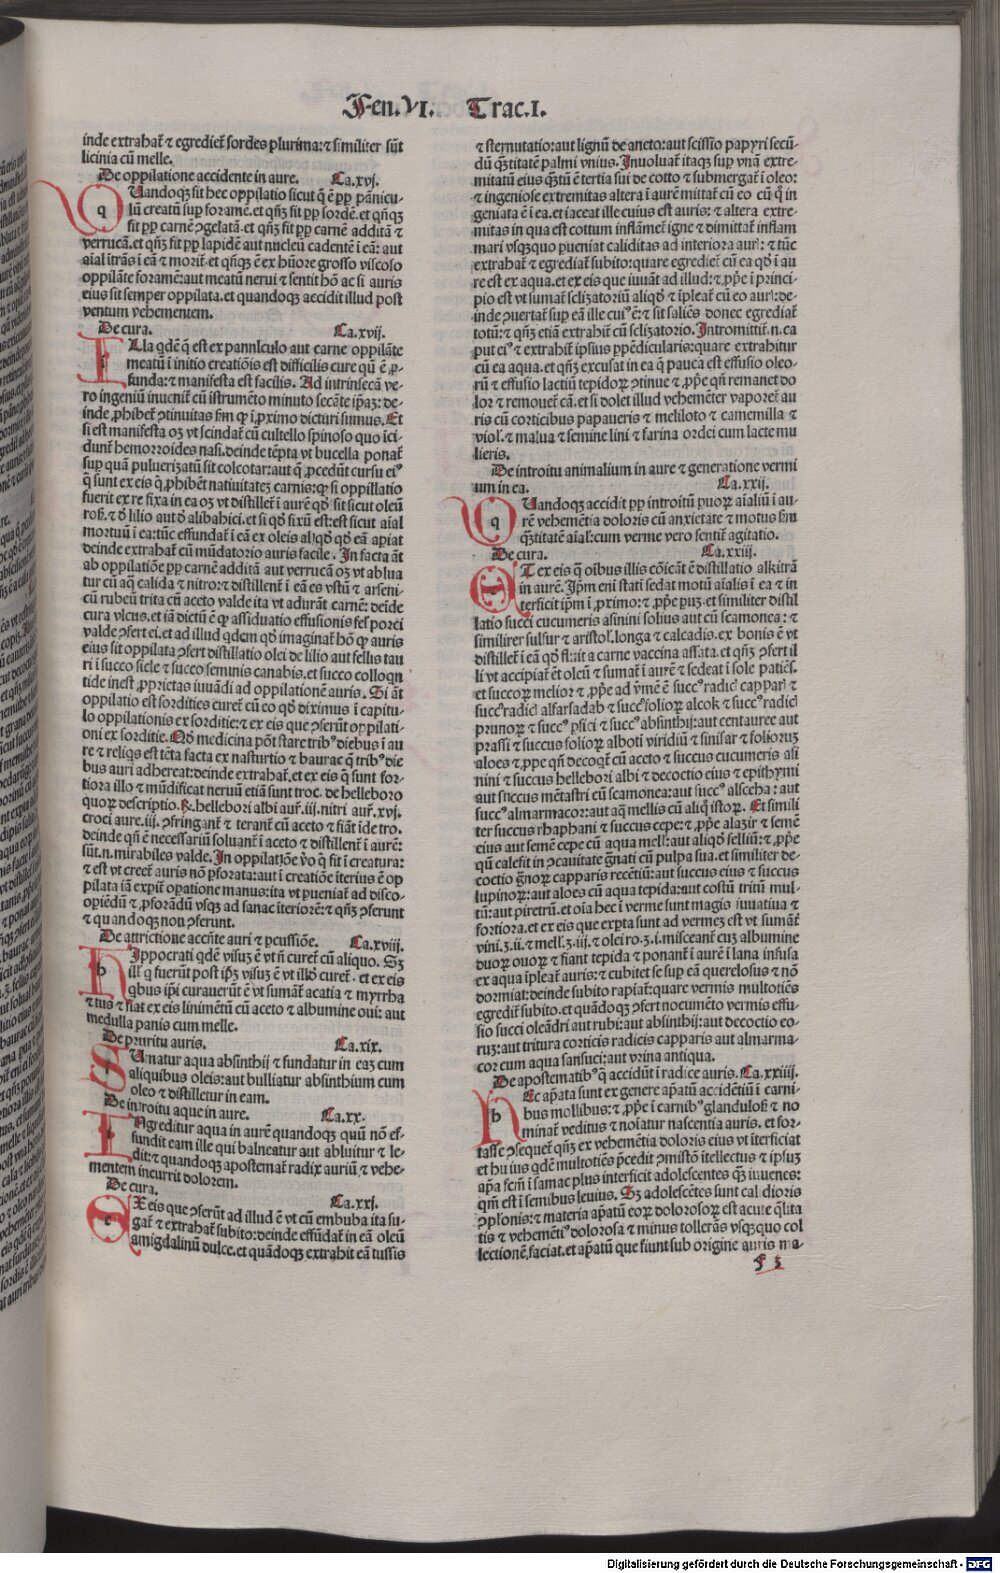 Fen.VI. Trac.I.
inde extrahat᷑ ⁊ egrediet᷑ sordes plurima: ⁊ similiter sūt
licinia cū melle.
De oppilatione accidente in aure. Ca.xvj.
q Uandoqꝫ fit hec oppilatio sicut q̄ ē ꝓp pānicu-
lū creatū sup foramē. et qñꝫ fit ꝓp sordē. et qñqꝫ
fit ꝓp carnē ꝯgelatā. et qñꝫ fit ꝓp carnē additā ⁊
verrucā. et qñꝫ fit ꝓp lapidē aut nucleū cadentē ī eā: aut
aīal ītrās ī eā ⁊ morit᷑. et qñqꝫ ē ex hūore grosso viscoso
oppilāte foramē: aut meatū nerui ⁊ sentit hō ac si auris
eius sit semper oppilata. et quandoqꝫ accidit illud post
ventum vehementem.
De cura. Ca.xvij.
Illa qdē q̄ est ex panniculo aut carne oppilāte
meatū ī initio creatiōis est difficilis cure qū ē ꝓ-
funda: ⁊ manifesta est facilis. Ad intrinsecā ve-
ro ingeniū inuenit᷑ cū istrumēto minuto secāte ipaꝫ: de-
inde ꝓhibet᷑ ꝯtinuitas fm qd̄ ī ꝓximo dicturi sumus. Et
si est manifesta oꝫ vt scindat᷑ cū cultello spinoso quo īci-
dunt᷑ hemorroides nasi. deinde tēpta vt bucella ponat᷑
sup quā puluerizatū sit colcotar: aut q̄ ꝓcedūt cursu eiꝰ
q̄ sunt ex eis q̄ ꝓhibēt natiuitateꝫ carnis: qꝫ si oppillatio
fuerit ex re fixa in ea oꝫ vt distillet᷑ ī aurē qd̄ sit sicut oleū
roꝭ. ⁊ d̄ lilio aut d̄ alibahici. et si qd̄ fixū est: est sicut aīal
mortuū ī ea: tūc effundat᷑ ī eā ex oleis aliqd̄ qd̄ eā aꝑiat
deinde extrahat᷑ cū mūdatorio auris facile. In facta āt
ab oppilatiōe ꝓp carnē additā aut verrucā oꝫ vt ablua
tur cū aq̄ calida ⁊ nitro: ⁊ distillent᷑ ī eā es vstū ⁊ arseni-
cū rubeū trita cū aceto valde ita vt adurāt carnē: deīde
cura vlcus. et iā dictū ē qꝫ assiduatio effusionis fel porci
valde ꝯfert ei. et ad illud qdem qd̄ imaginat᷑ hō qꝫ auris
eius sit oppilata ꝯfert distillatio olei de lilio aut fellis tau
ri ī succo sicle ⁊ succo seminis canabis. et succo colloqn
tide inest ꝓprietas iuuādi ad oppilationē auris. Si āt
oppilatio est sorditiei curet᷑ cū eo qd̄ diximus ī capitu-
lo oppilationis ex sorditie: ⁊ ex eis que ꝯferūt oppilati-
oni ex sorditie. Nō medicina pōt stare tribꝰ diebus ī au
re ⁊ reliqs est tēta facta ex nasturtio ⁊ baurac q̄ tribꝰ die
bus auri adhereat: deinde extrahat᷑. et ex eis q̄ sunt for-
tiora illo ⁊ mūdificat neruū etiā sunt troc. de helleboro
quoꝝ descriptio. ℞. hellebori albi aur̄.iij. nitri aur̄.xvj.
croci aure.iij. ꝯstringant᷑ ⁊ terant᷑ cū aceto ⁊ fiāt īde tro.
deinde qñ ē necessariū soluant᷑ ī aceto ⁊ distillent᷑ ī aurē:
sūt.n. mirabiles valde. In oppilatiōe v̄o q̄ fit ī creatura:
⁊ est vt creet᷑ auris nō ꝑforata: aut ī creatiōe īterius ē op
pilata iā expit᷑ oꝑatione manus: ita vt ꝑueniat᷑ ad disco-
oꝑiēdū ⁊ ꝑforādū vsqꝫ ad sanac īteriorē: ⁊ qñꝫ ꝯferunt
⁊ quandoqꝫ non ꝯferunt.
De attrictione accn̄te auri ⁊ ꝑcussiōe. Ca.xviij.
h Ippocrati qdē visuꝫ ē vt ñ curet᷑ cū aliquo. Sꝫ
ill̓ q̄ fuerūt post ip̄ꝫ visuꝫ ē vt illd̓ curet᷑. et ex eis
qbus ip̄i curauerūt ē vt sumat᷑ acatia ⁊ myrrha
⁊ tus ⁊ fiat ex eis linimētū cū aceto ⁊ albumine oui: aut
medulla panis cum melle.
De pruritu auris. Ca.xix.
s Umatur aqua absinthij ⁊ fundatur in eaꝫ cum
aliquibus oleis: aut bulliatur absinthium cum
oleo ⁊ distilletur in eam.
De introitu aque in aure. Ca.xx.
Ingreditur aqua in aurē quandoqꝫ quū nō ef-
fundit eam ille qui balneatur aut abluitur ⁊ le-
dit: ⁊ quandoqꝫ apostemat᷑ radix auriū ⁊ vehe-
mentem incurrit dolorem.
De cura. Ca.xxj.
e Xeis que ꝯferūt ad illud ē vt cū embuba ita su-
gat᷑ ⁊ extrahat᷑ subito: deinde effūdat᷑ in eā oleū
amigdalinū dulce. et quādoqꝫ extrahit eā tussis
⁊ sternutatio: aut lignū de aneto: aut scissio papyri secū-
dū qꝫtitatē palmi vnius. Inuoluat᷑ itaqꝫ sup vnā extre-
mitatū eius qꝫtū ē tertia sui de cotto ⁊ submergat᷑ ī oleo:
⁊ ingeniose extremitas altera ī aurē mittat᷑ cū eo cū q̄ in
geniata ē ī ea. et iaceat ille cuius est auris: ⁊ altera extre-
mitas in qua est cottum inflāmet᷑ igne ⁊ dimittat᷑ inflam
mari vsqꝫquo ꝑueniat caliditas ad interiora auri: ⁊ tūc
extrahat᷑ ⁊ egrediat᷑ subito: quare egrediet᷑ cū ea qd̄ ī au
re est ex aqua. et ex eis que iuuāt ad illud: ⁊ ꝓp̄e ī princi-
pio est vt sumat᷑ sclizatoriū aliqd̄ ⁊ īpleat᷑ cū eo auri: de-
inde ꝯuertat᷑ sup eā ille cuiꝰ ē: ⁊ sit saliēs donec egrediat᷑
totū: ⁊ qñꝫ etiā extrahit᷑ cū sclizatorio. Intromittit᷑.n. ca
put eiꝰ ⁊ extrahit᷑ ipsius ꝑpēdicularis: quare extrahitur
cū ea aqua. et qñꝫ excusat in ea q̄ pauca est effusio oleo-
rū ⁊ effusio lactiū tepidoꝝ ꝯtinue ⁊ ꝓp̄e qñ remanet do
lor ⁊ remouet᷑ cā. et si dolet illud vehemēter vaporet᷑ au
ris cū corticibus papaueris ⁊ meliloto ⁊ camemilla ⁊
viol̓. ⁊ malua ⁊ semine lini ⁊ farina ordei cum lacte mu
lieris.
De introitu animalium in aure ⁊ generatione vermi
um in ea. Ca.xxij.
q Uandoqꝫ accidit ꝓp introitū ꝑuoꝝ aīaliū ī au-
rē vehemētia doloris cū anxietate ⁊ motus fm
qꝫtitatē aīal: cum verme vero sentit᷑ agitatio.
De cura. Ca.xxiij.
e T ex eis q̄ oībus illis cōicāt ē distillatio alkitrā
in aurē. Ip̄m eni stati sedat motū aīalis ī ea ⁊ in
terficit ip̄m ī ꝓximo: ⁊ ꝓp̄e ꝑuꝫ. et similiter distil
latio succi cucumeris asinini solius aut cū scamonea: ⁊
similirer sulfur ⁊ aristol̓. longa ⁊ calcadis. ex bonis ē vt
distillet᷑ ī eā qd̄ fl: it a carne vaccina assata. et qñꝫ ꝯfert il
li vt accipiat᷑ ēt oleū ⁊ sumat᷑ ī aurē ⁊ sedeat ī sole patiēs.
et succoꝝ melior ⁊ ꝓp̄e ad v̄mē ē succꝰ radic̓ cappari ⁊
succꝰ radic̓ alfarsadab ⁊ succꝰ folioꝝ alcok ⁊ succꝰ radic̓
prunoꝝ ⁊ succꝰ ꝑsici ⁊ succꝰ absinthij: aut centauree aut
prassi ⁊ succus folioꝝ alboti viridiū ⁊ sinisar ⁊ folioruꝫ
aloes ⁊ ꝓp̄e qñ decoqt᷑ cū aceto ⁊ succus cucumeris asi
nini ⁊ succus hellebori albi ⁊ decoctio eius ⁊ epithymi
aut succus mētastri cū scamonea: aut succꝰ alsceha: aut
succꝰ almarmacor: aut aq̄ mellis cū aliq̓ istoꝝ. Et simili
ter succus rhaphani ⁊ succus cepe: ⁊ ꝓp̄e alazir ⁊ semē
eius aut semē cepe cū aqua mell̓: aut aliqd̄ felliū: ⁊ ꝓp̄e
qū calefit in ꝯcauitate gnati cū pulpa sua. et similiter de-
coctio ḡnoꝝ capparis recētiū: aut succus eius ⁊ succus
lupinoꝝ: aut aloes cū aqua tepida: aut costū tritū mul-
tū: aut piretrū. et oīa hec ī verme sunt magis iuuatiua ⁊
fortiora. et ex eis que expta sunt ad vermeꝫ est vt sumāt᷑
vini.ʒ.ii. ⁊ mell̓.ʒ.iij. ⁊ olei ro.ʒ.i. misceant᷑ cuꝫ albumine
duoꝝ ouoꝝ ⁊ fiant tepida ⁊ ponant᷑ ī aurē ī lana infusa
ex aqua īpleat᷑ auris: ⁊ cubitet se sup eā querelosus ⁊ nō
dormiat: deinde subito rapiat᷑: quare vermis multotiēs
egredit᷑ subito. et quādoqꝫ ꝯfert nocumēto vermis effu-
sio succi oleādri aut rubi: aut absinthij: aut decoctio eo-
ruꝫ: aut tritura corticis radicis capparis aut almarma-
cor cum aqua sansuci: aut vrina antiqua.
De apostematibꝰ q̄ accidūt ī radice auris. Ca.xxiiij.
h Ec ap̄ata sunt ex genere ap̄atū accidētiū ī carni-
bus mollibus: ⁊ ꝓp̄e ī carnibꝰ glanduloꝭ ⁊ no
minat᷑ veditus ⁊ noīatur nascentia auris. et for-
tasse ꝯsequet᷑ qñꝫ ex vehemētia doloris eius vt īterficiat
et huius qdē multotiēs ꝓcedit ꝑmistō ītellectus ⁊ ipsuꝫ
ap̄a fcm̄ ī samac plus interficit adolescentes qꝫ iuuenes:
qm̄ est ī senibus leuius. Sꝫ adolescētes sunt cal̓ dioris
ꝯplōnis: ⁊ materia ap̄atū eoꝝ dolorosoꝝ est acute q̄lita
tis ⁊ vehemētiꝰ dolorosa ⁊ minus tollerās vsqꝫquo col
lectionē faciat. et ap̄atū que fiunt sub origine auris ma-
f 3
Digitalisierung gefördert durch die Deutsche Forschungsgemeinschaft - DFG